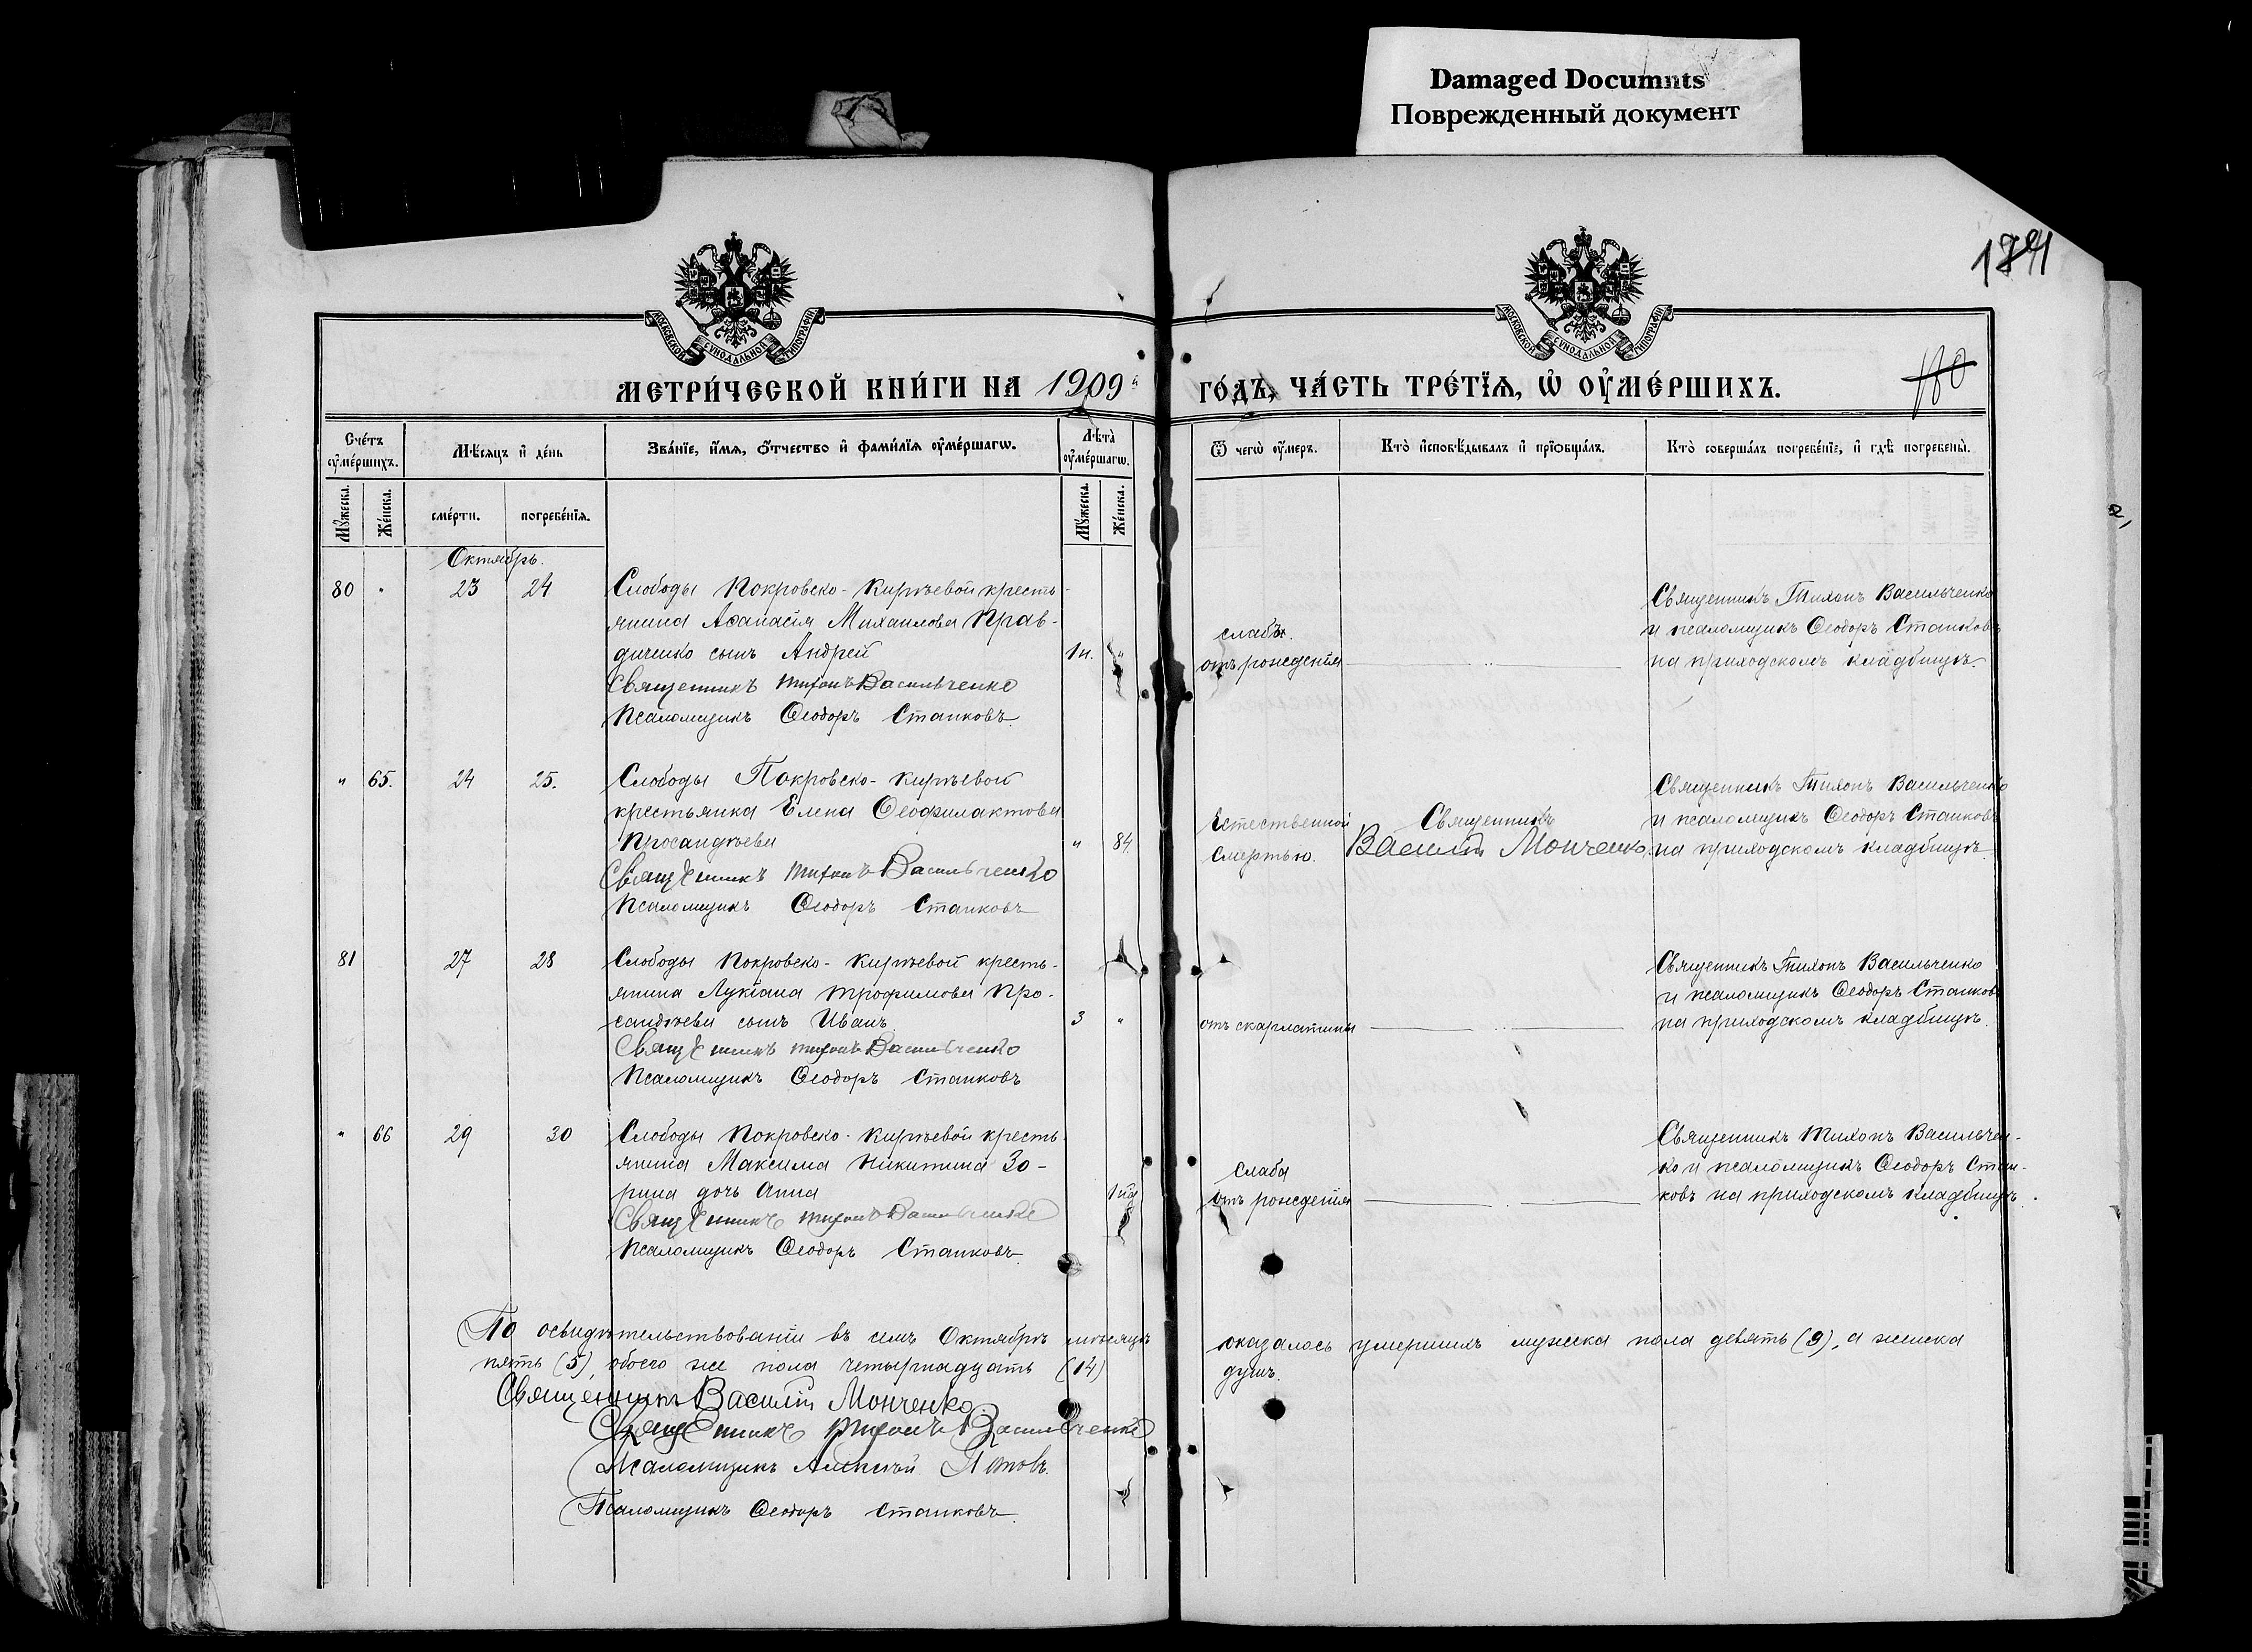 Damaged Documnts
Поврежденный документ
МОСКОВСКОЙ СѴНОДАЛЬНОЙ ТИПОГРАФІИ
МОСКОВСКОЙ СѴНОДАЛЬНОЙ ТИПОГРАФІИ
180
МЕТРИ́ЧЕСКОЙ КНИ́ГИ НА 1909 ГО́ДЪ, ЧА́СТЬ ТРЕ́ТЇѦ, Ѡ҆ ОУ҆МЕ́РШИХЪ.
Сче́тъ оу҆ме́ршихъ.
Мѣ́сѧцъ и҆ де́нь
Зва́нїе, и҆́мѧ, ѻ҆́тчество и҆ фами́лїѧ оу҆ме́ршагѡ.
Лѣ̑та оу҆ме́ршагѡ.
Ѿ чегѡ̀ оу҆́меръ.
Кто̀ и҆сповѣ́дывалъ и҆ прїѡбща́лъ.
Кто̀ соверша́лъ погребе́нїе, и҆ гдѣ̀ погребены̀.
Мꙋ́жеска.
Же́нска.
сме́рти.
погребе́нїѧ.
Мꙋ́жеска.
Же́нска.
Октябрь.
80 " 23 24 Слободы Покровско-Кирѣевой кресть-
янина Аѳанасія Михаилова Прав-
диченко сынъ Андрей 1н. "
Священникъ Тихонъ Васильченко
Псаломщикъ Ѳеодоръ Станковъ.
слабъ.
отъ рожденія
Священникъ Тихонъ Васильченко
и псаломщикъ Ѳеодоръ Станковъ
на приходскомъ кладбищѣ.
" 65. 24 25. Слободы Покровско-Кирѣевой
крестьянка Елена Ѳеофилактова
Просандѣева " 84.
Священникъ Тихонъ Васильченко
Псаломщикъ Ѳеодоръ Станковъ
Естественной
смертью.
Священникъ
Василій Монченко
Священникъ Тихонъ Васильченко
и псаломщикъ Ѳеодоръ Станковъ
на приходскомъ кладбищѣ.
81 27 28 Слободы Покровско-Кирѣевой кресть-
янина Лукіана Трофимова Про-
сандѣева сынъ Иванъ 3 "
Священникъ Тихонъ Васильченко
Псаломщикъ Ѳеодоръ Станковъ
отъ скарлатины
Священникъ Тихонъ Васильченко
и псаломщикъ Ѳеодоръ Станковъ
на приходскомъ кладбищѣ.
" 66 29 30 Слободы Покровско-Кирѣевой кресть-
янина Максима Никитина Зо-
рина дочь Анна
Священникъ Тихонъ Васильченко
Псаломщикъ Ѳеодоръ Станковъ.
слаба
отъ рожденія
Священникъ Тихонъ Васильчен-
ко и псаломщикъ Ѳеодоръ Стан-
ковъ на приходскомъ кладбищѣ.
По освидѣтельствованіи въ семъ Октябрѣ мѣсяцѣ оказалось умершихъ мужеска пола девять (9), а женска
пять (5), обоего же пола четырнадцать (14) душъ.
Священникъ Василій Монченко.
Священникъ Тихонъ Васильченко
Псаломщикъ Алексѣй Поповъ.
Псаломщикъ Ѳеодоръ Станковъ.